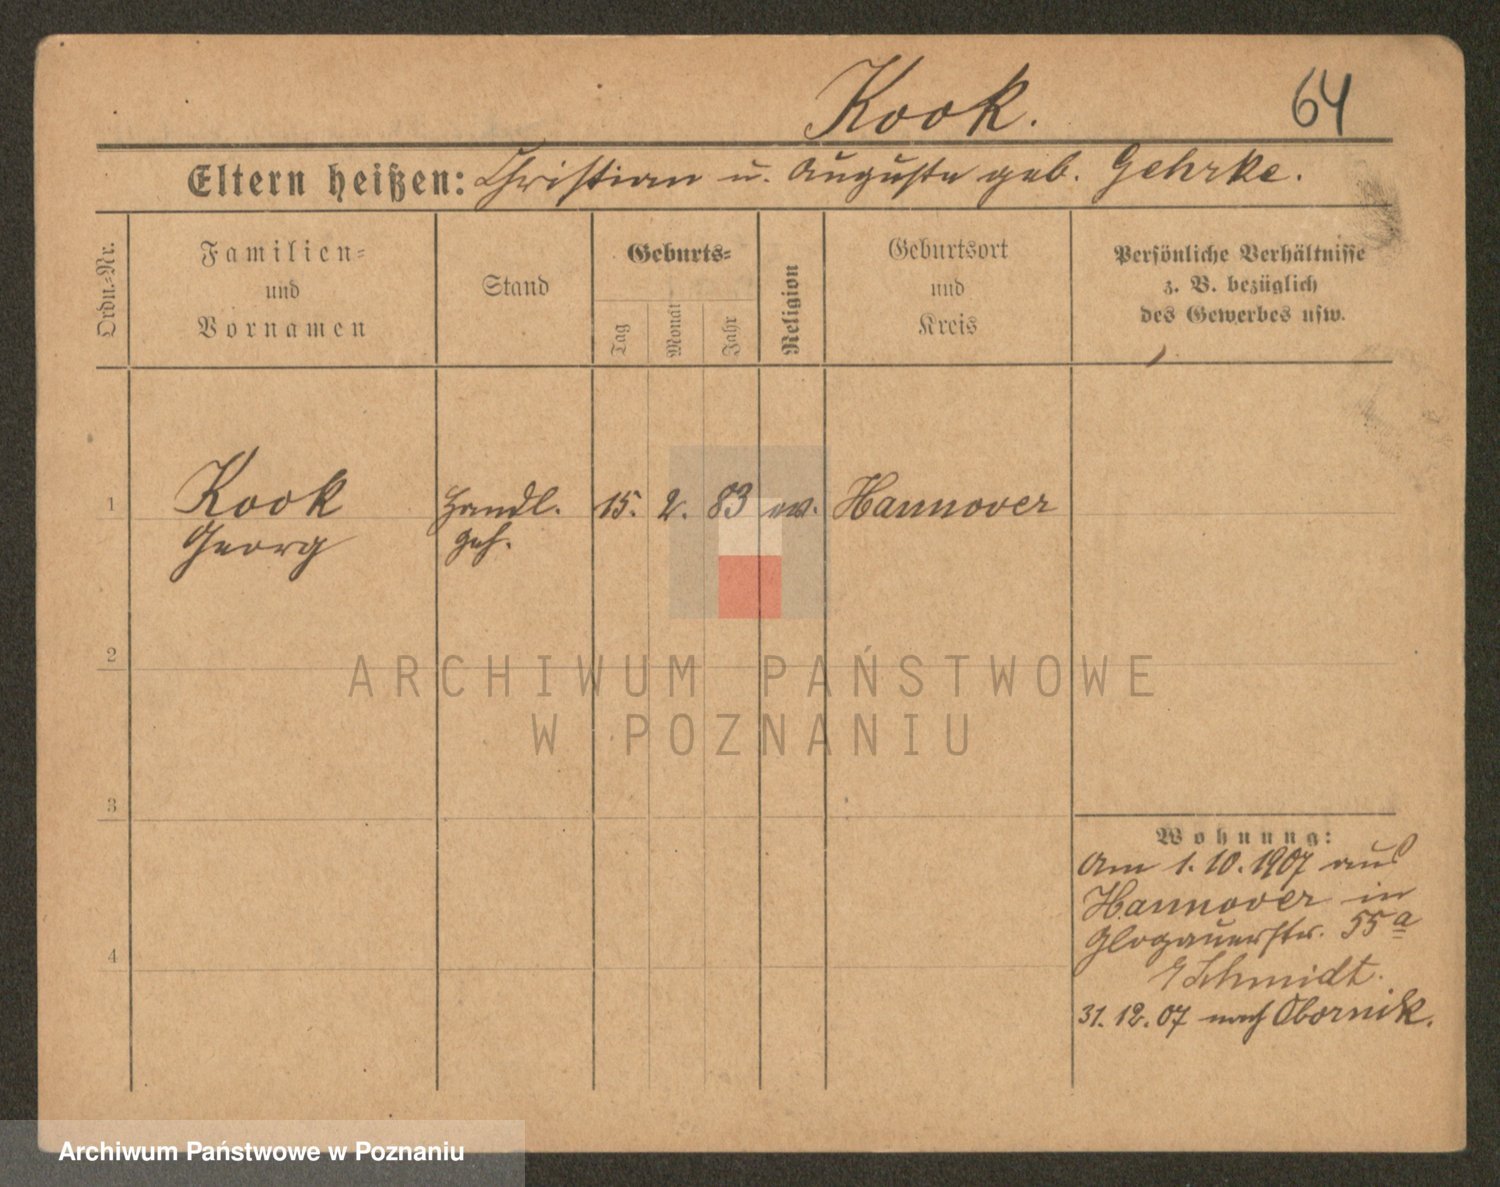 Kook.
64
Eltern heißen: Christian u. Auguste geb. Gehrke.
Ordn.-Nr.
Familien-
und
Vornamen
Stand
Geburts-
Tag
Monat
Jahr
Religion
Geburtsort
und
Kreis
Persönliche Verhältnisse
z. B. bezüglich
des Gewerbes usw.
1
Kook
Georg
Handl.
Geh.
15. 2. 83 ev. Hannover
2
ARCHIWUM PAŃSTWOWE
W POZNANIU
3
4
Wohnung:
Am 1.10.1907 aus
Hannover in
Glogauerstr. 55a
Schmidt.
31.12.07 nach Obornik.
Archiwum Państwowe w Poznaniu